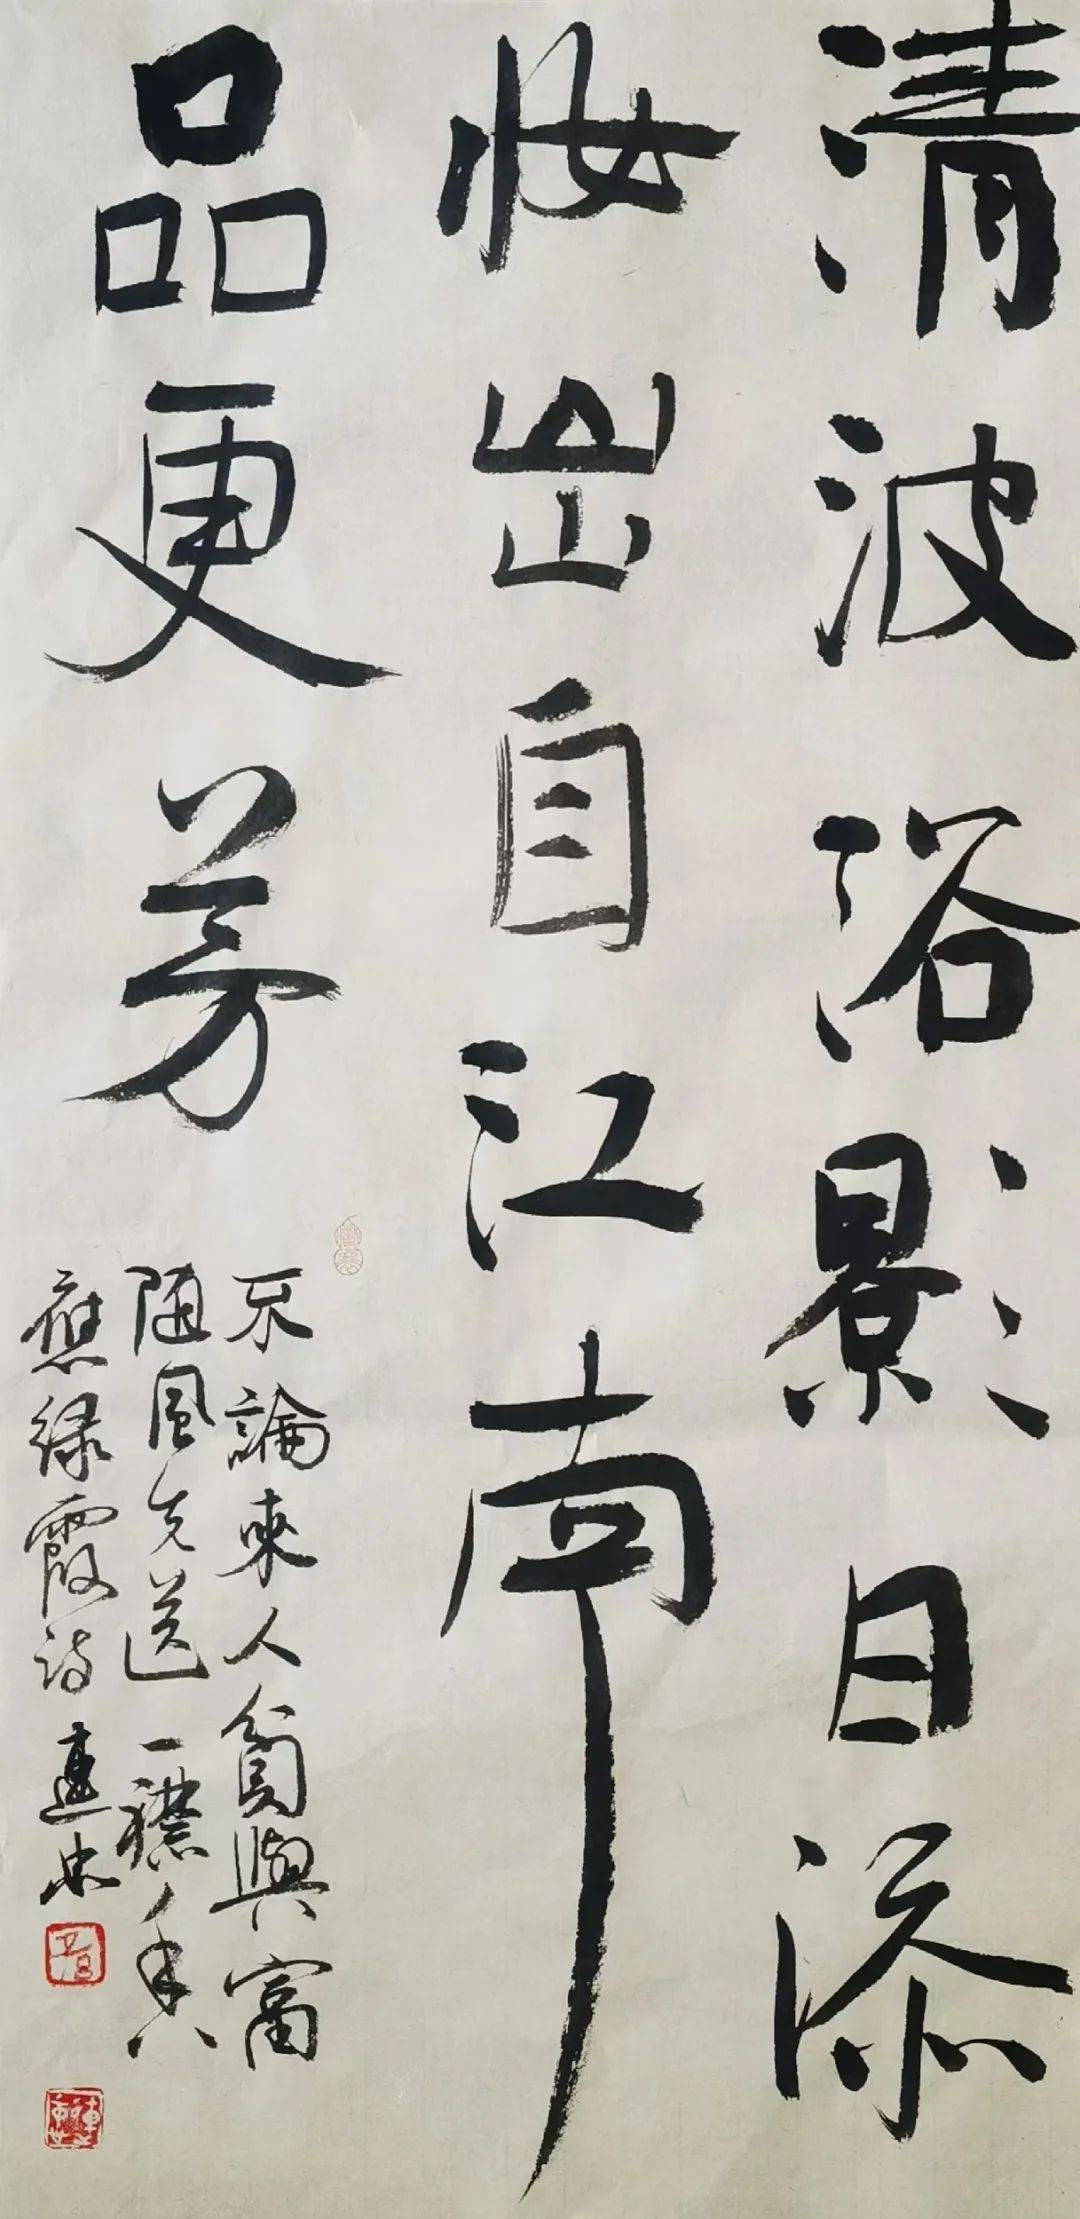 清波浴影日添
妝出自江南
品更芳
不論來人貧與富
隨風先送一襟香
應綠霞詩